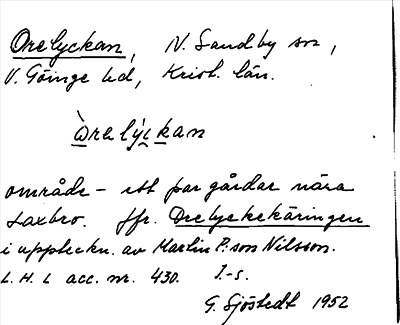 Orelyckan, N. Sandby sn,
V. Göinge hd, Krist. län.
Òrelýckan
område - ett par gårdar nära
Laxbro. Jfr. Orelyckekäringen
i uppteckn. av Martin P:son Nilsson.
L. H. L acc. nr. 430. I.-s.
G. Sjöstedt 1952